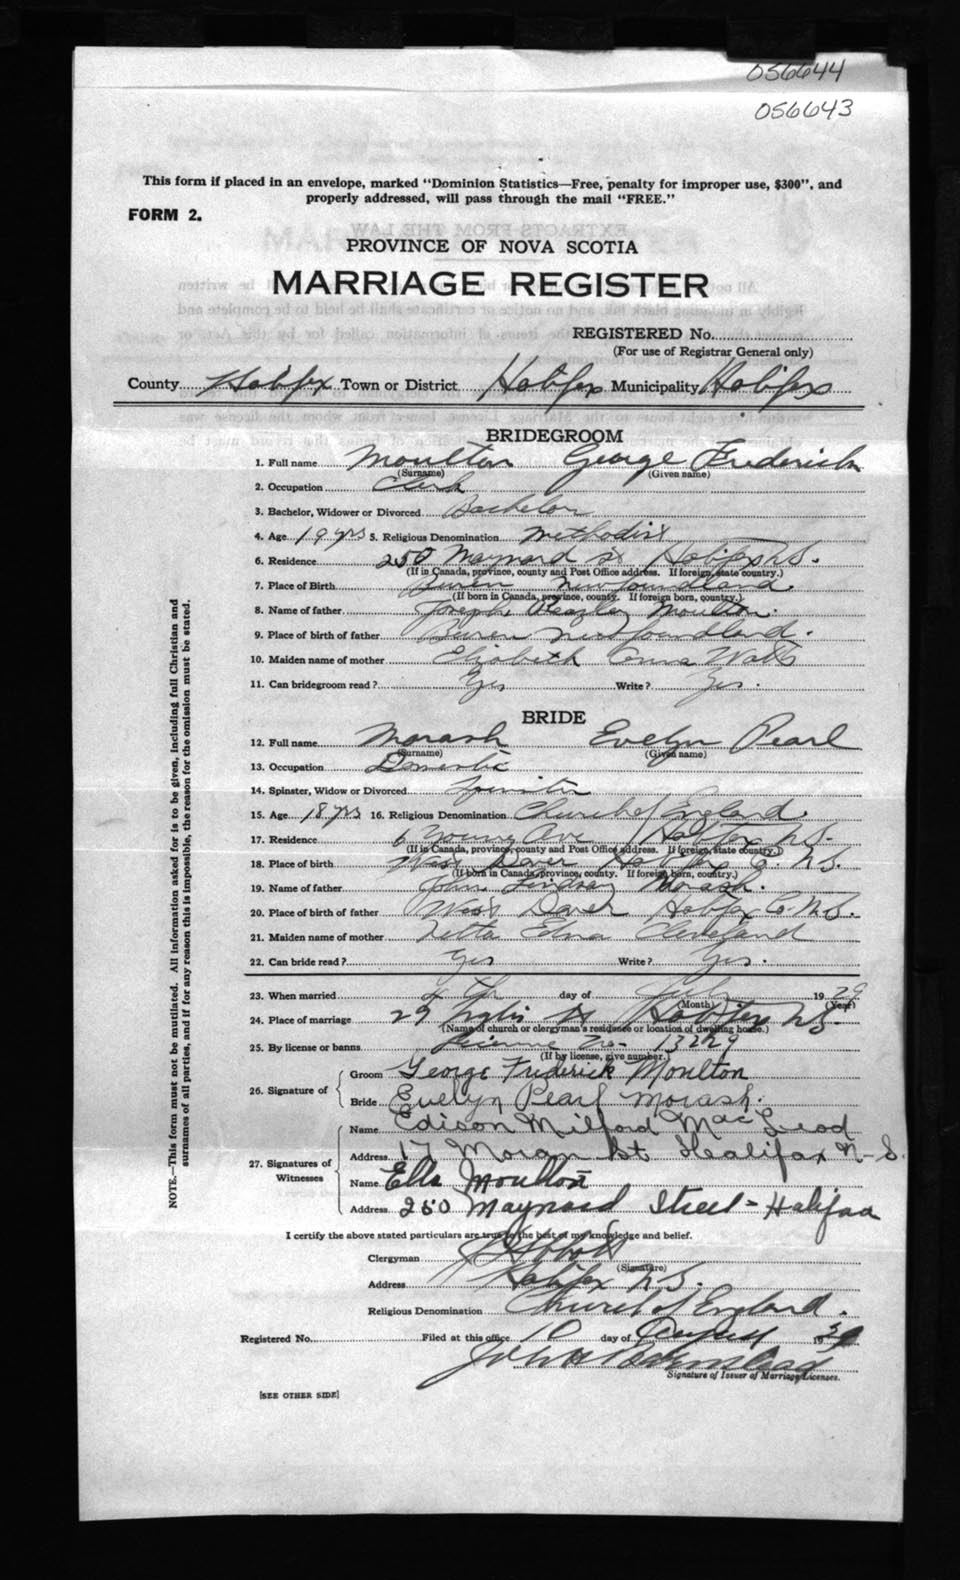 056644
056643
This form if placed in an envelope, marked "Dominion Statistics—Free, penalty for improper use, $300", and
properly addressed, will pass through the mail "FREE."
FORM 2.
PROVINCE OF NOVA SCOTIA
MARRIAGE REGISTER
REGISTERED No.
(For use of Registrar General only)
County Halifax Town or District Halifax Municipality Halifax
BRIDEGROOM
1. Full name Moulton George Frederick
(Surname) (Given name)
2. Occupation Clerk
3. Bachelor, Widower or Divorced Bachelor
4. Age 19 yrs 5. Religious Denomination Methodist
6. Residence 250 Maynard St Halifax N.S.
(If in Canada, province, county and Post Office address. If foreign, state country.)
7. Place of Birth Burin Newfoundland.
(If born in Canada, province, county. If foreign born, country.)
8. Name of father Joseph Moulton.
9. Place of birth of father Burin Newfoundland.
10. Maiden name of mother Elizabeth Watts
11. Can bridegroom read? Yes Write? Yes.
BRIDE
12. Full name Morash Evelyn Pearl
(Surname) (Given name)
13. Occupation Domestic
14. Spinster, Widow or Divorced Spinster
15. Age 18 yrs 16. Religious Denomination Church of England.
17. Residence 6 Young Ave Halifax N.S.
(If in Canada, province, county and Post Office address. If foreign, state country.)
18. Place of birth West Dover Halifax Co. N.S.
(If born in Canada, province, county. If foreign born, country.)
19. Name of father John Lindsay Morash.
20. Place of birth of father West Dover Halifax Co. N.S.
21. Maiden name of mother Edna Cleveland
22. Can bride read? Yes Write? Yes.
23. When married 4th day of July 1929
(Month) (Year)
24. Place of marriage 29 Inglis St Halifax N.S.
(Name of church or clergyman's residence or location of dwelling house.)
25. By license or banns License No. 13229
(If by license, give number.)
26. Signature of Groom George Frederick Moulton
Bride Evelyn Pearl Morash.
27. Signatures of Witnesses
Name Edison Milford MacLeod
Address 17 Moran St Halifax N-S.
Name Ella Moulton
Address 250 Maynard Street - Halifax
I certify the above stated particulars are true to the best of my knowledge and belief.
Clergyman
(Signature)
Address Halifax N.S.
Religious Denomination Church of England.
Registered No. Filed at this office 10 day of August 19
John H Barnstead
Signature of Issuer of Marriage Licenses.
[SEE OTHER SIDE]
NOTE.—This form must not be mutilated. All information asked for is to be given, including full Christian and
surnames of all parties, and if for any reason this is impossible, the reason for the omission must be stated.